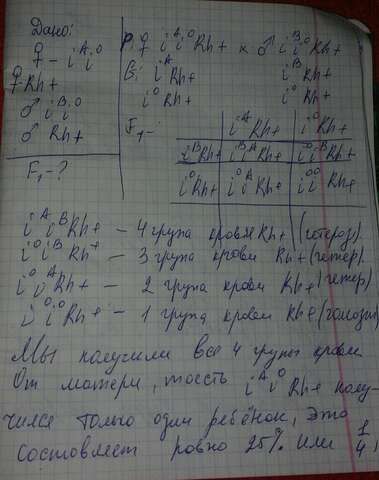 Дано:
♀ - i^A i^O
♀ Rh+
♂ i^B i^O
♂ Rh+
F₁ - ?
P: ♀ i^A i^O Rh+ × ♂ i^B i^O Rh+
G: i^A Rh+ i^B Rh+
i^O Rh+ i^O Rh+
F₁ -
i^A Rh+ i^O Rh+
i^B Rh+ i^B i^A Rh+ i^O i^B Rh+
i^O Rh+ i^O i^A Rh+ i^O i^O Rh+
i^A i^B Rh+ - 4 група крови Rh+ (гетероз).
i^O i^B Rh+ - 3 група крови Rh+ (гетер).
i^O i^A Rh+ - 2 група крови Rh+ (гетер)
i^O i^O Rh+ - 1 група крови Rh+ (гомозиг)
Мы получили все 4 групы крови
От матери, тоесть i^A i^O Rh+ полу-
чился только один ребёнок, это
состовляет ровно 25% или 1/4,